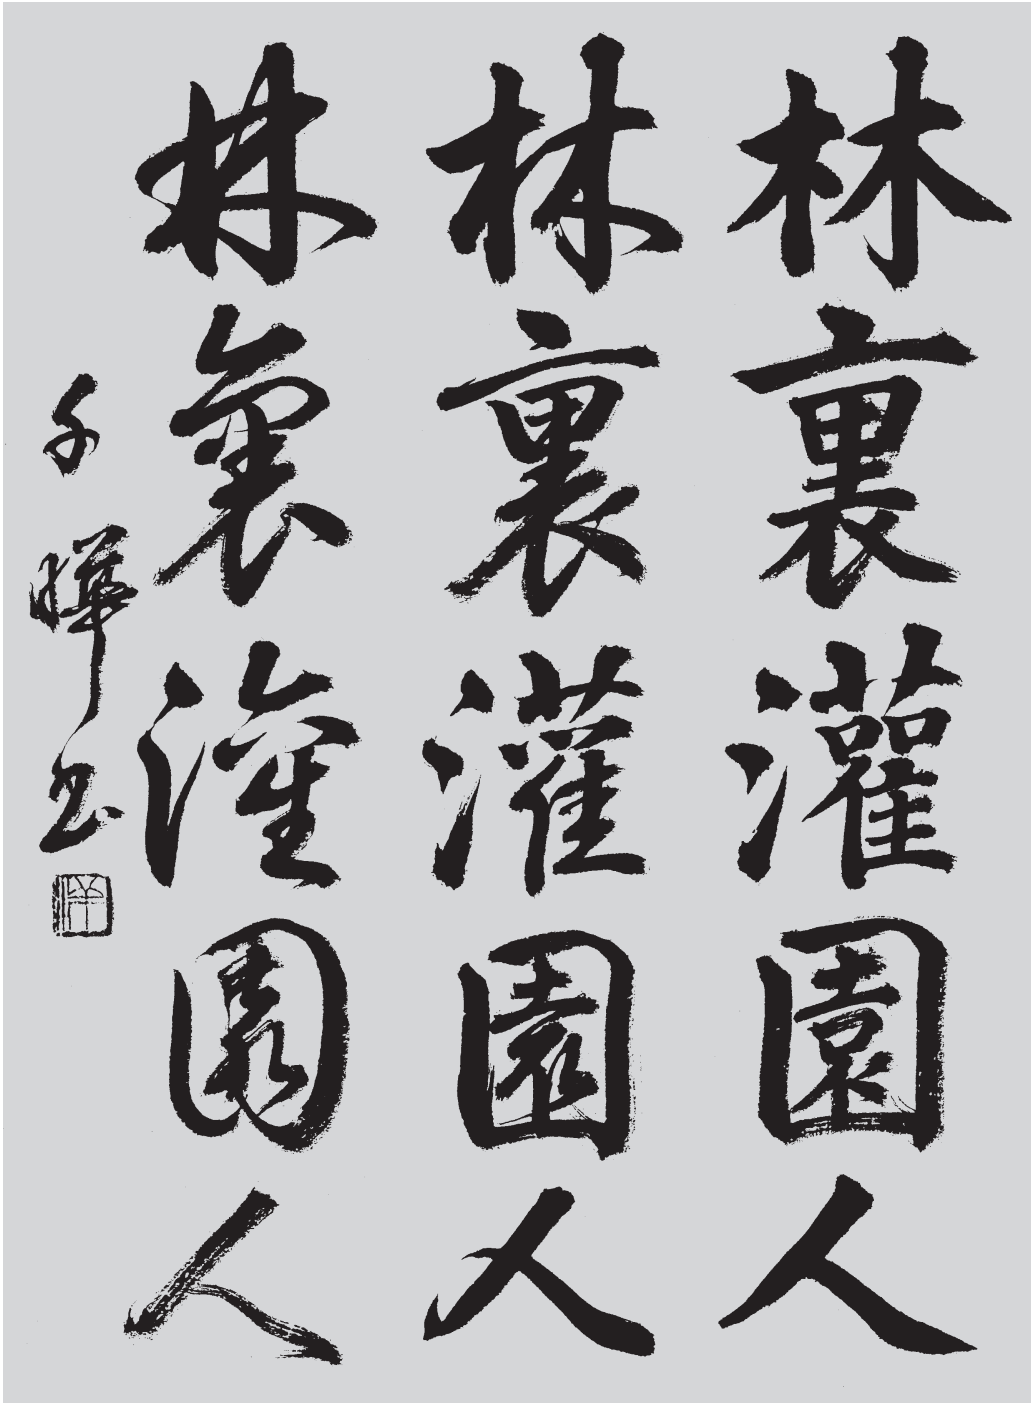 林裏灌園人
林裏灌園人
林裏灌園人
千暉书